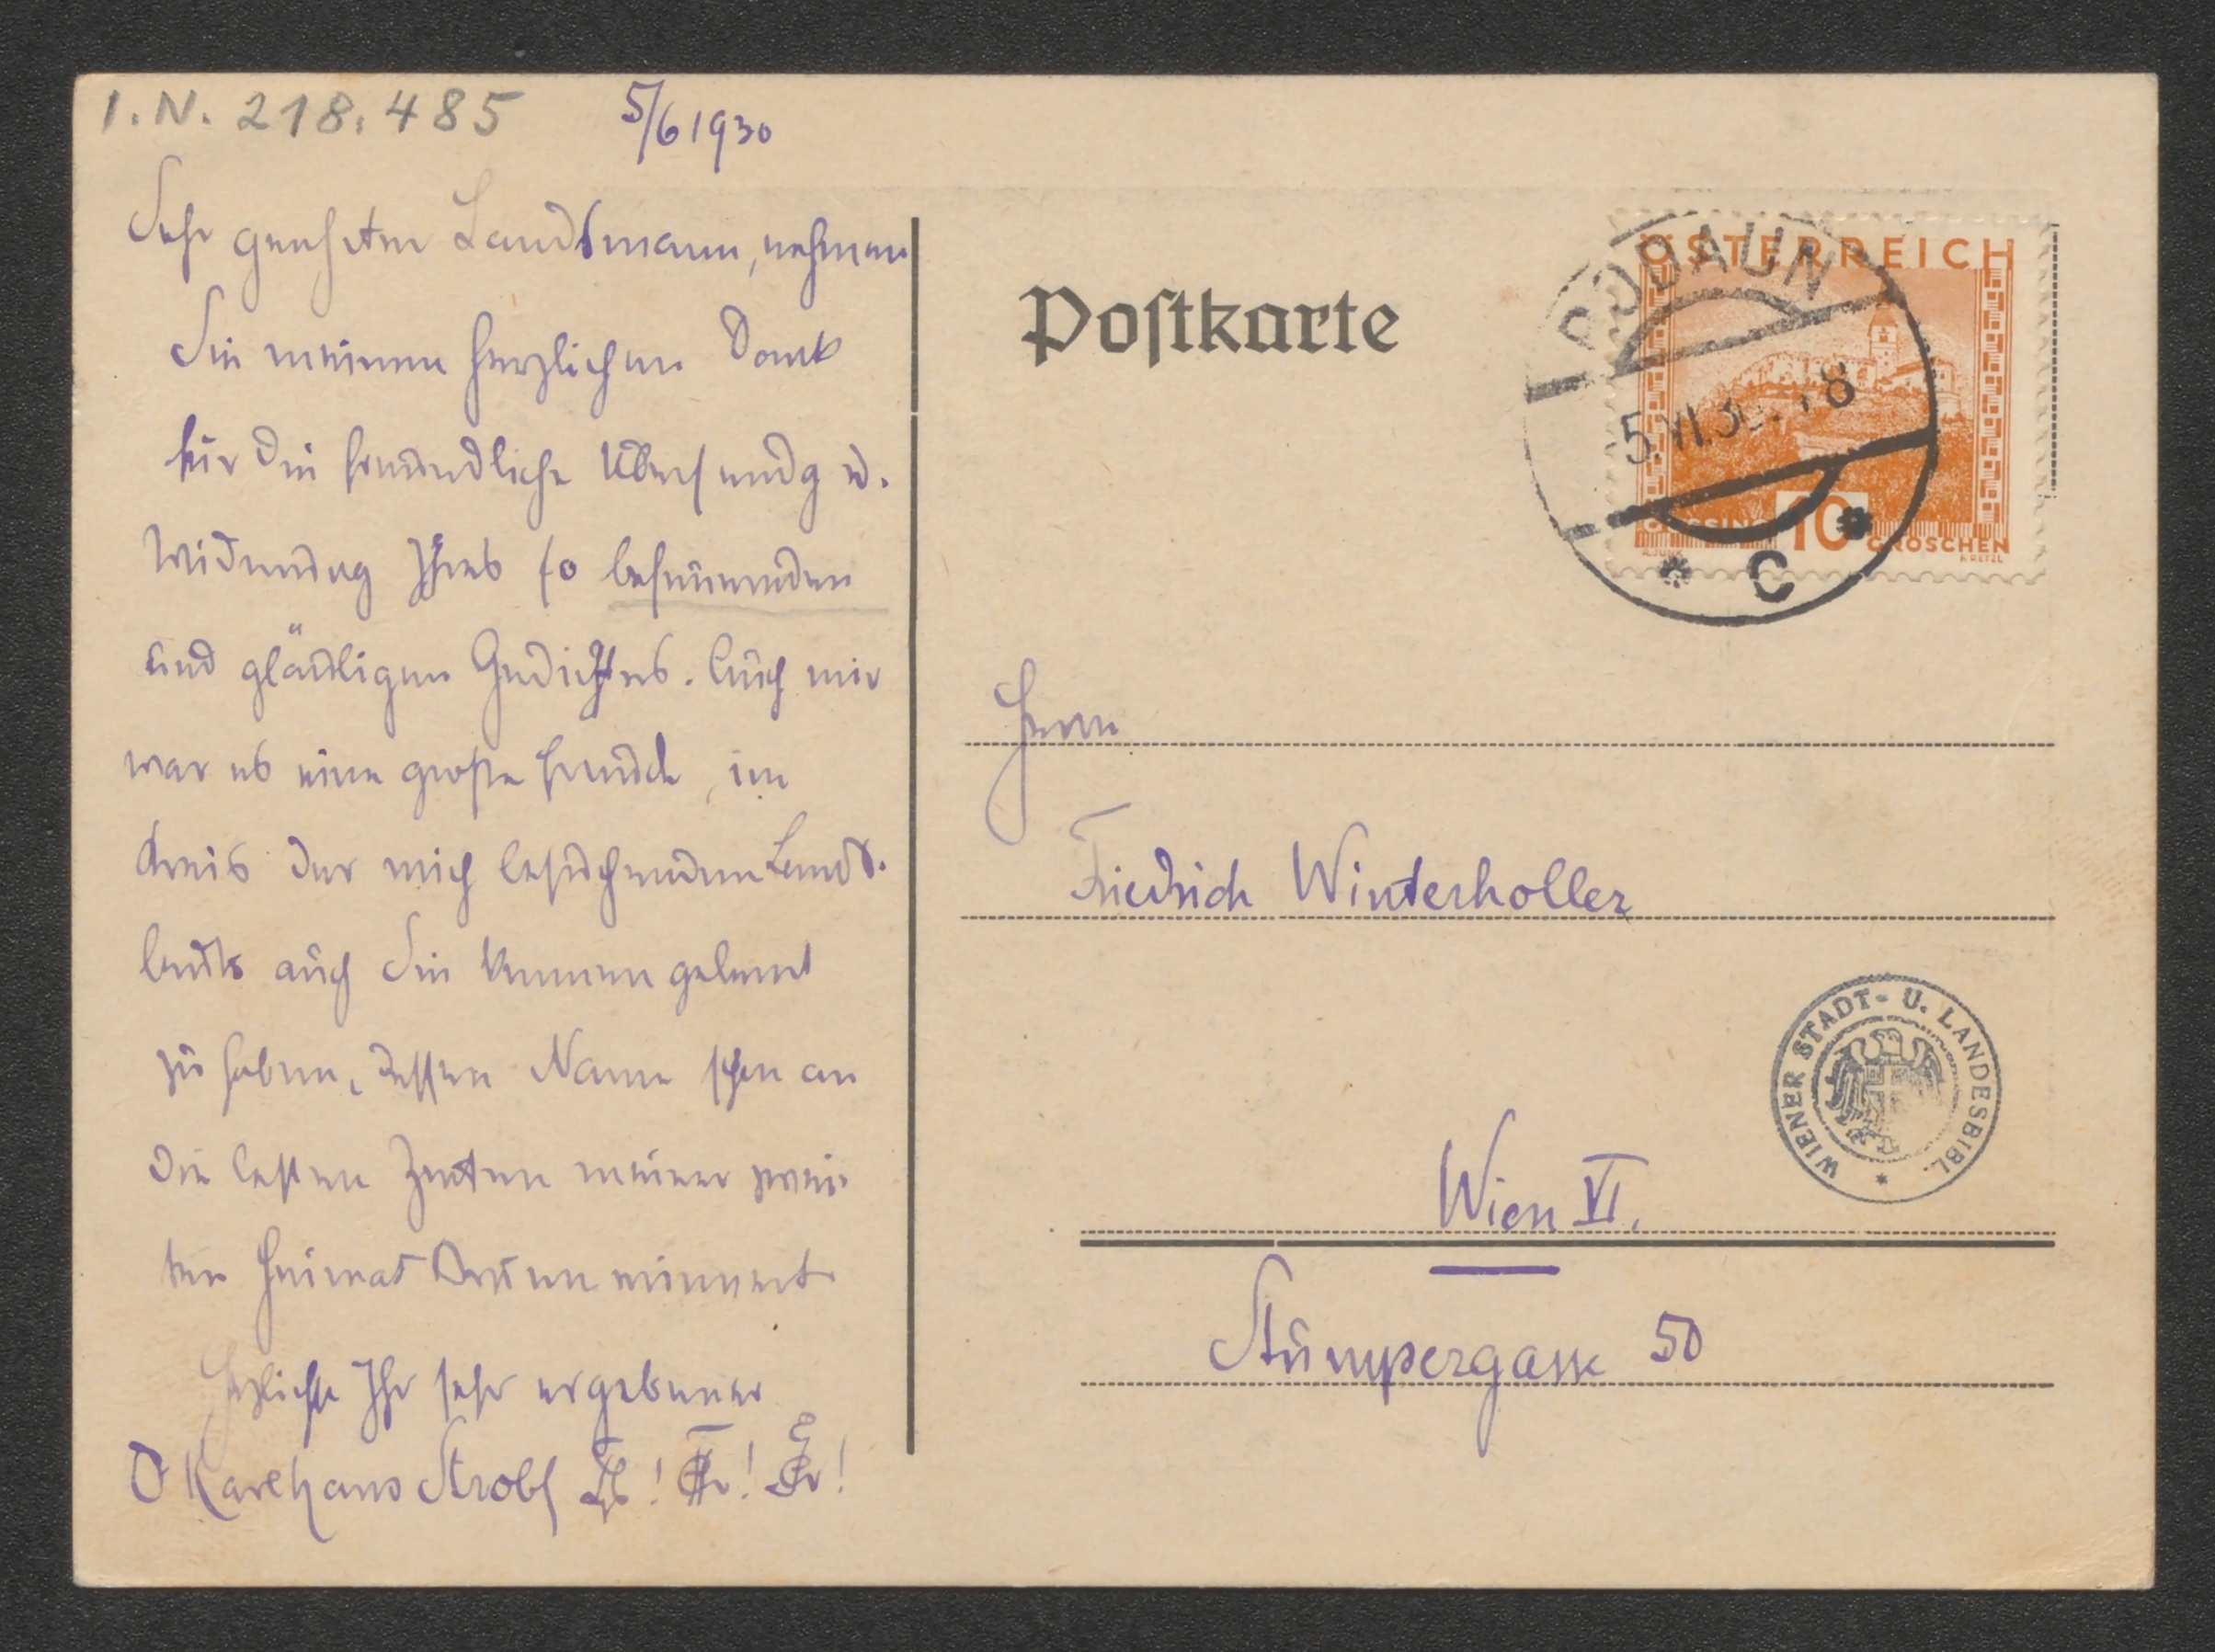 I.N. 218.485
5/6 1930
Sehr geehrter Landsmann, nehmen
Sie meinen herzlichen Dank
für die freundliche Übersendg u.
Widmung Ihres so
und gläubigen Gedichtes. Auch mir
war es eine große Freude, im
Kreis der mich besuchenden Lands-
leute auch Sie kennen gelernt
zu haben, dessen Name schon an
die besten Zeiten meiner zwei-
ten Heimat Brünn erinnert.
Herzlichst Ihr sehr ergebener
Karl Hans Strobl
Postkarte
ÖSTERREICH
10 GROSCHEN
RODAUN
5.VI.30. 18
* C *
Herrn
Friedrich Winterholler
WIENER STADT- U. LANDESBIBL. *
Wien VI.
Stumpergasse 50